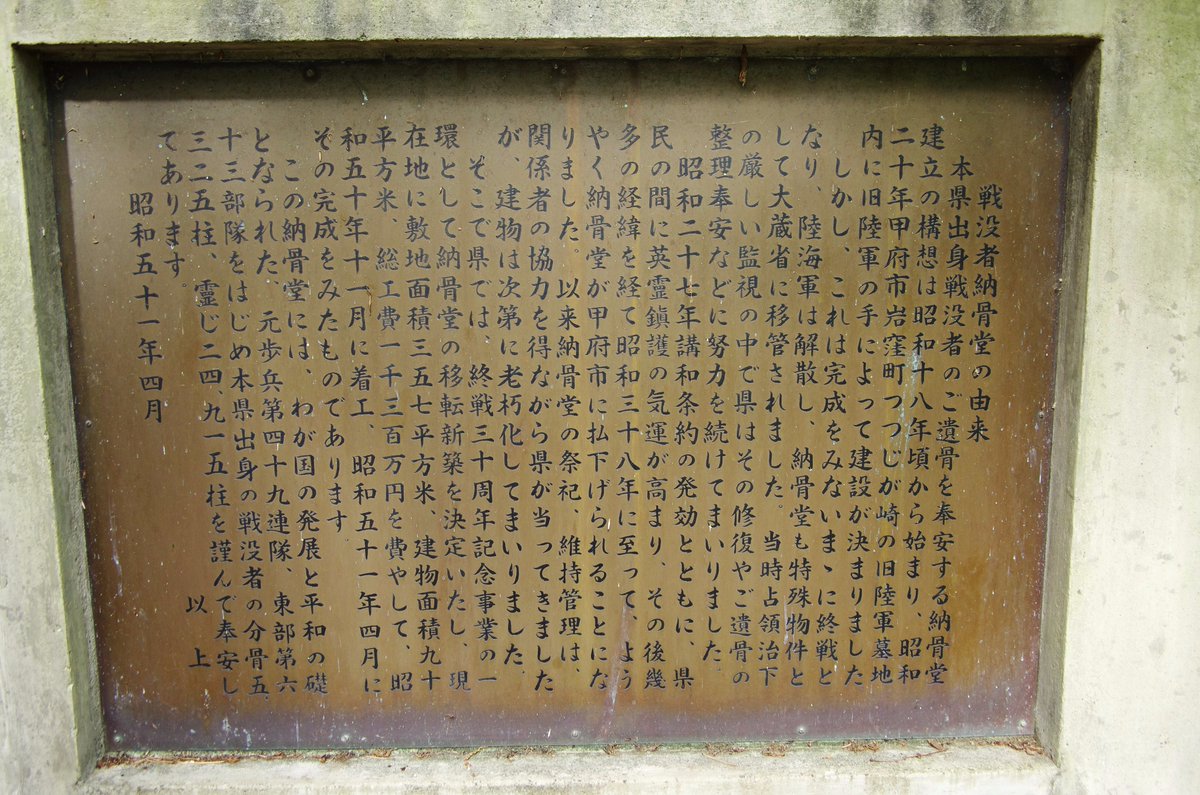 戦没者納骨堂の由来
本県出身戦没者のご遺骨を奉安する納骨堂
建立の構想は昭和十八年頃から始まり、昭和
二十年甲府市岩窪町つつじが崎の旧陸軍墓地
内に旧陸軍の手によって建設が決まりました
しかし、これは完成をみないまゝに終戦と
なり、陸海軍は解散し、納骨堂も特殊物件と
して大蔵省に移管されました。当時占領治下
の厳しい監視の中で県はその修復やご遺骨の
整理奉安などに努力を続けてまいりました。
昭和二十七年講和条約の発効とともに、県
民の間に英霊鎮護の気運が高まり、その後幾
多の経緯を経て昭和三十八年に至って、よう
やく納骨堂が甲府市に払下げられることにな
りました。以来納骨堂の祭祀、維持管理は、
関係者の協力を得ながら県が当ってきました
が、建物は次第に老朽化してまいりました。
そこで県では、終戦三十周年記念事業の一
環として納骨堂の移転新築を決定いたし、現
在地に敷地面積三五七平方米、建物面積九十
平方米、総工費一千三百万円を費やして、昭
和五十年十一月に着工、昭和五十一年四月に
その完成をみたものであります。
この納骨堂には、わが国の発展と平和の礎
となられた、元歩兵第四十九連隊、東部第六
十三部隊をはじめ本県出身の戦没者の分骨五
三二五柱、霊じ二四、九一五柱を謹んで奉安し
てあります。
以上
昭和五十一年四月